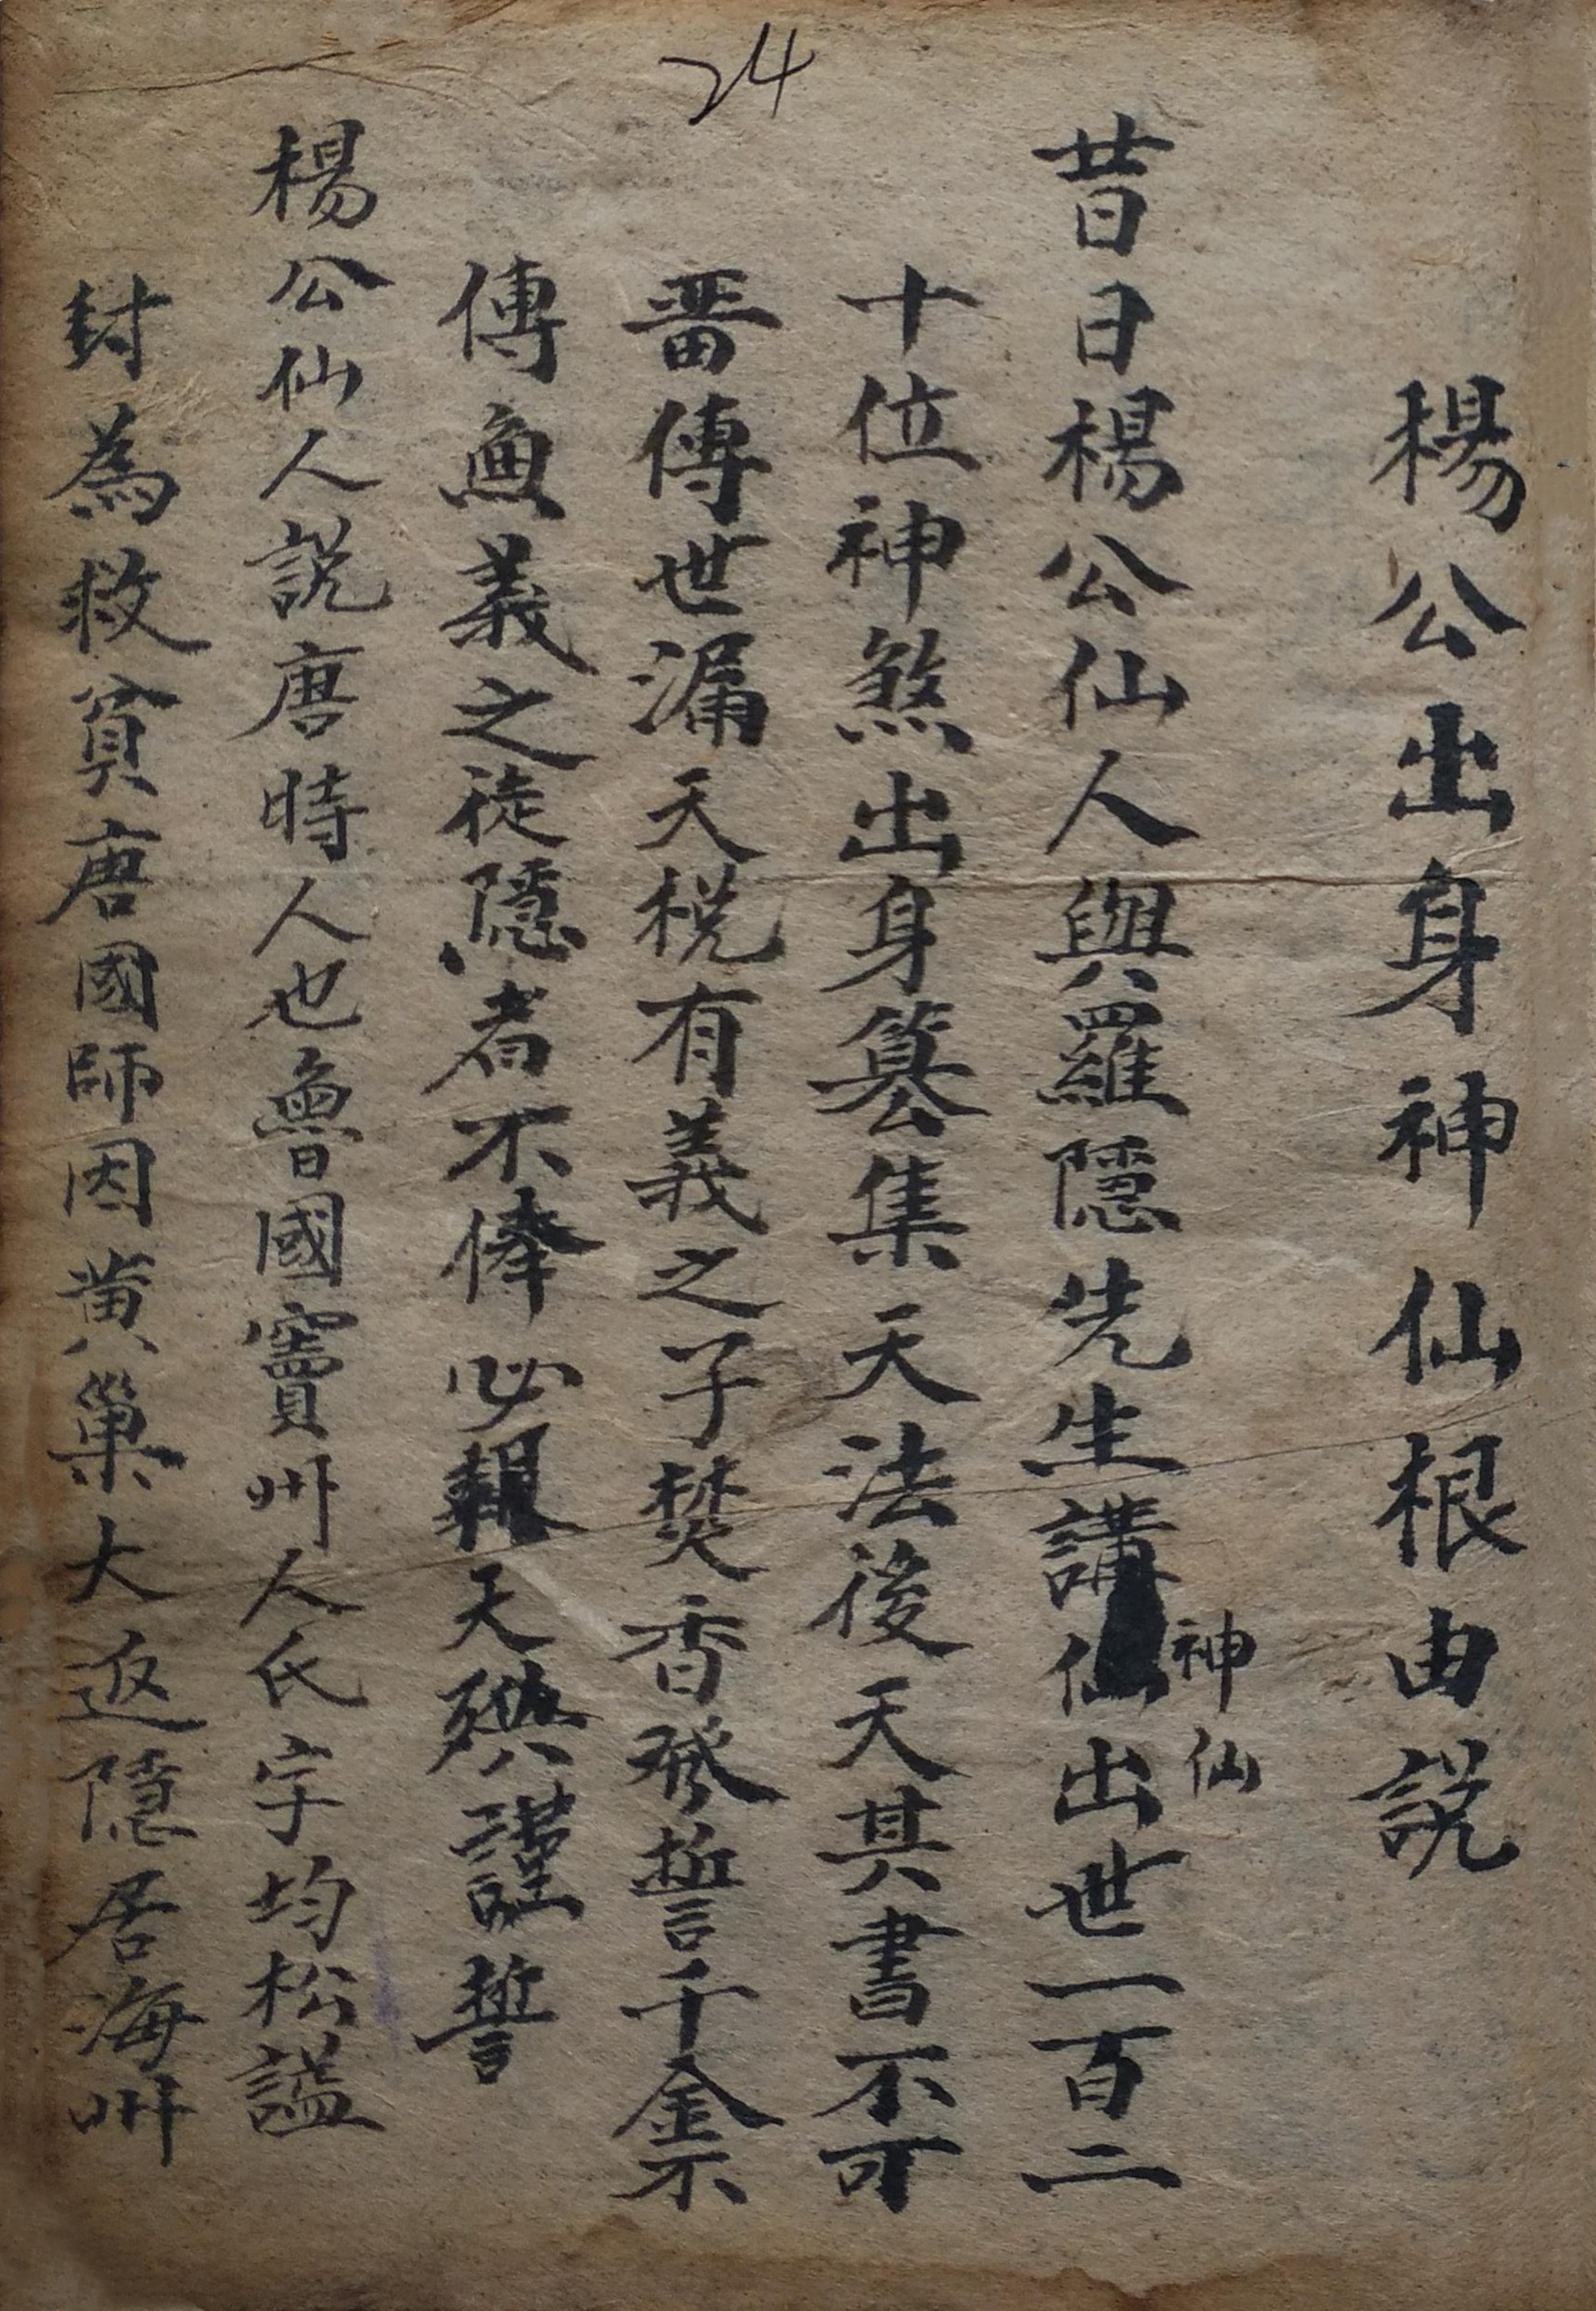 24
楊公出身神仙根由説
昔日楊公仙人與羅隱先生講神仙出世一百二
十位神煞出身簒集天法後天其書不可
啚傳世漏天税有義之子焚香發誓千金不
傳魚義之徒隱者不俸必報天殃謹誓
楊公仙人説唐時人也魯國竇州人氏字均松謚
封為救貧唐國師因黄巢大返隱居海州